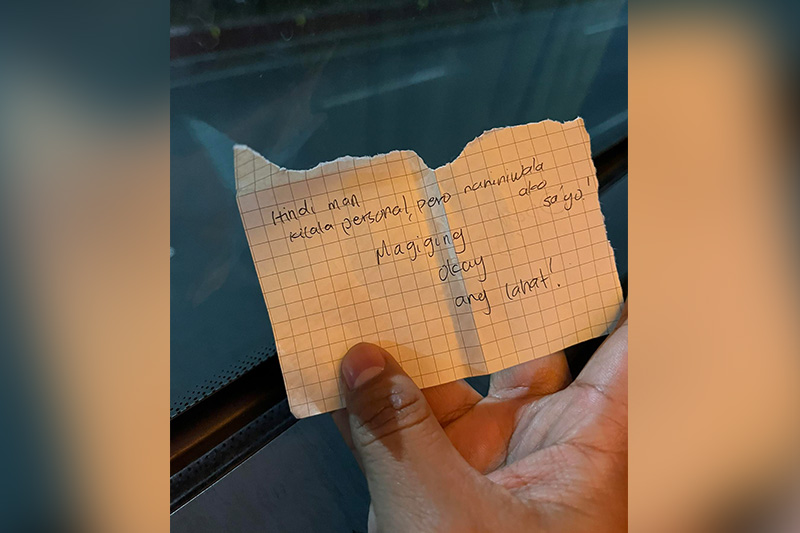 Hindi man
kilala personal, pero naniniwala
ako
sa'yo!
Magiging
okay
ang lahat!